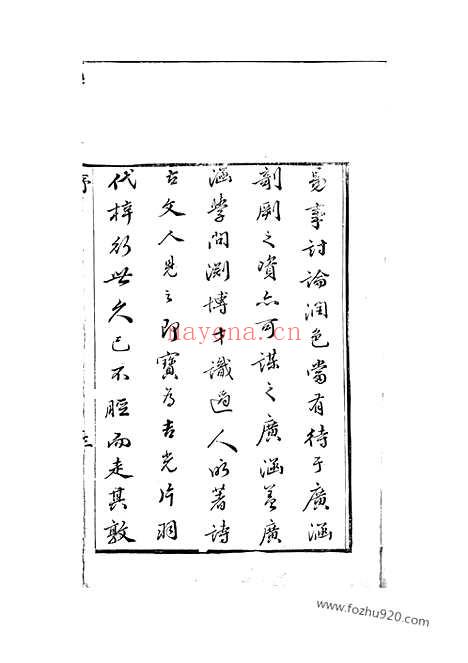 易事討論潤色當有待于廣涵
剞劂之資亦可謀之廣涵蓋廣
涵學問淵博才識過人所著詩
古文人見之即寶為吉光片羽
代梓行世久已不脛而走其敦
序
三
nayona.cn
www.fozhu920.com